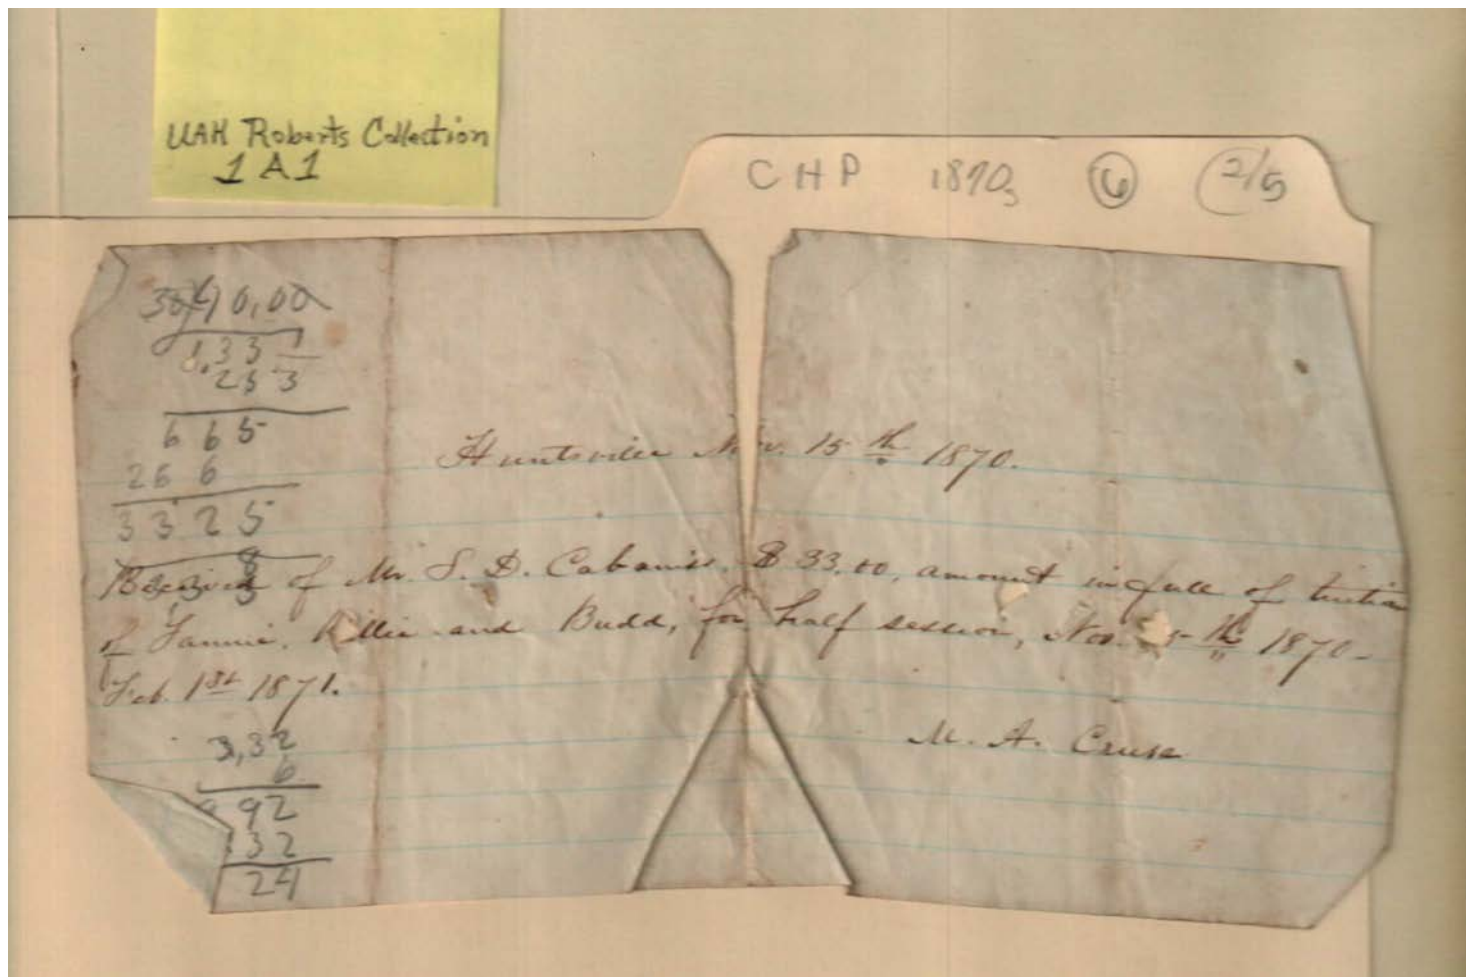 UAH Roberts Collection
1 A 1
CHP 1870s 6 2/5
30 40,00
1,33
253
665
266
3325
Huntsville Nov. 15th 1870.
Received of Mr. S. D. Cabaniss, $33.00, amount in full of tuition
of Fannie, and Budd, for half session, Nov. 1870-
Feb. 1st 1871.
3,32
6
92
32
24
M. A. Cruse